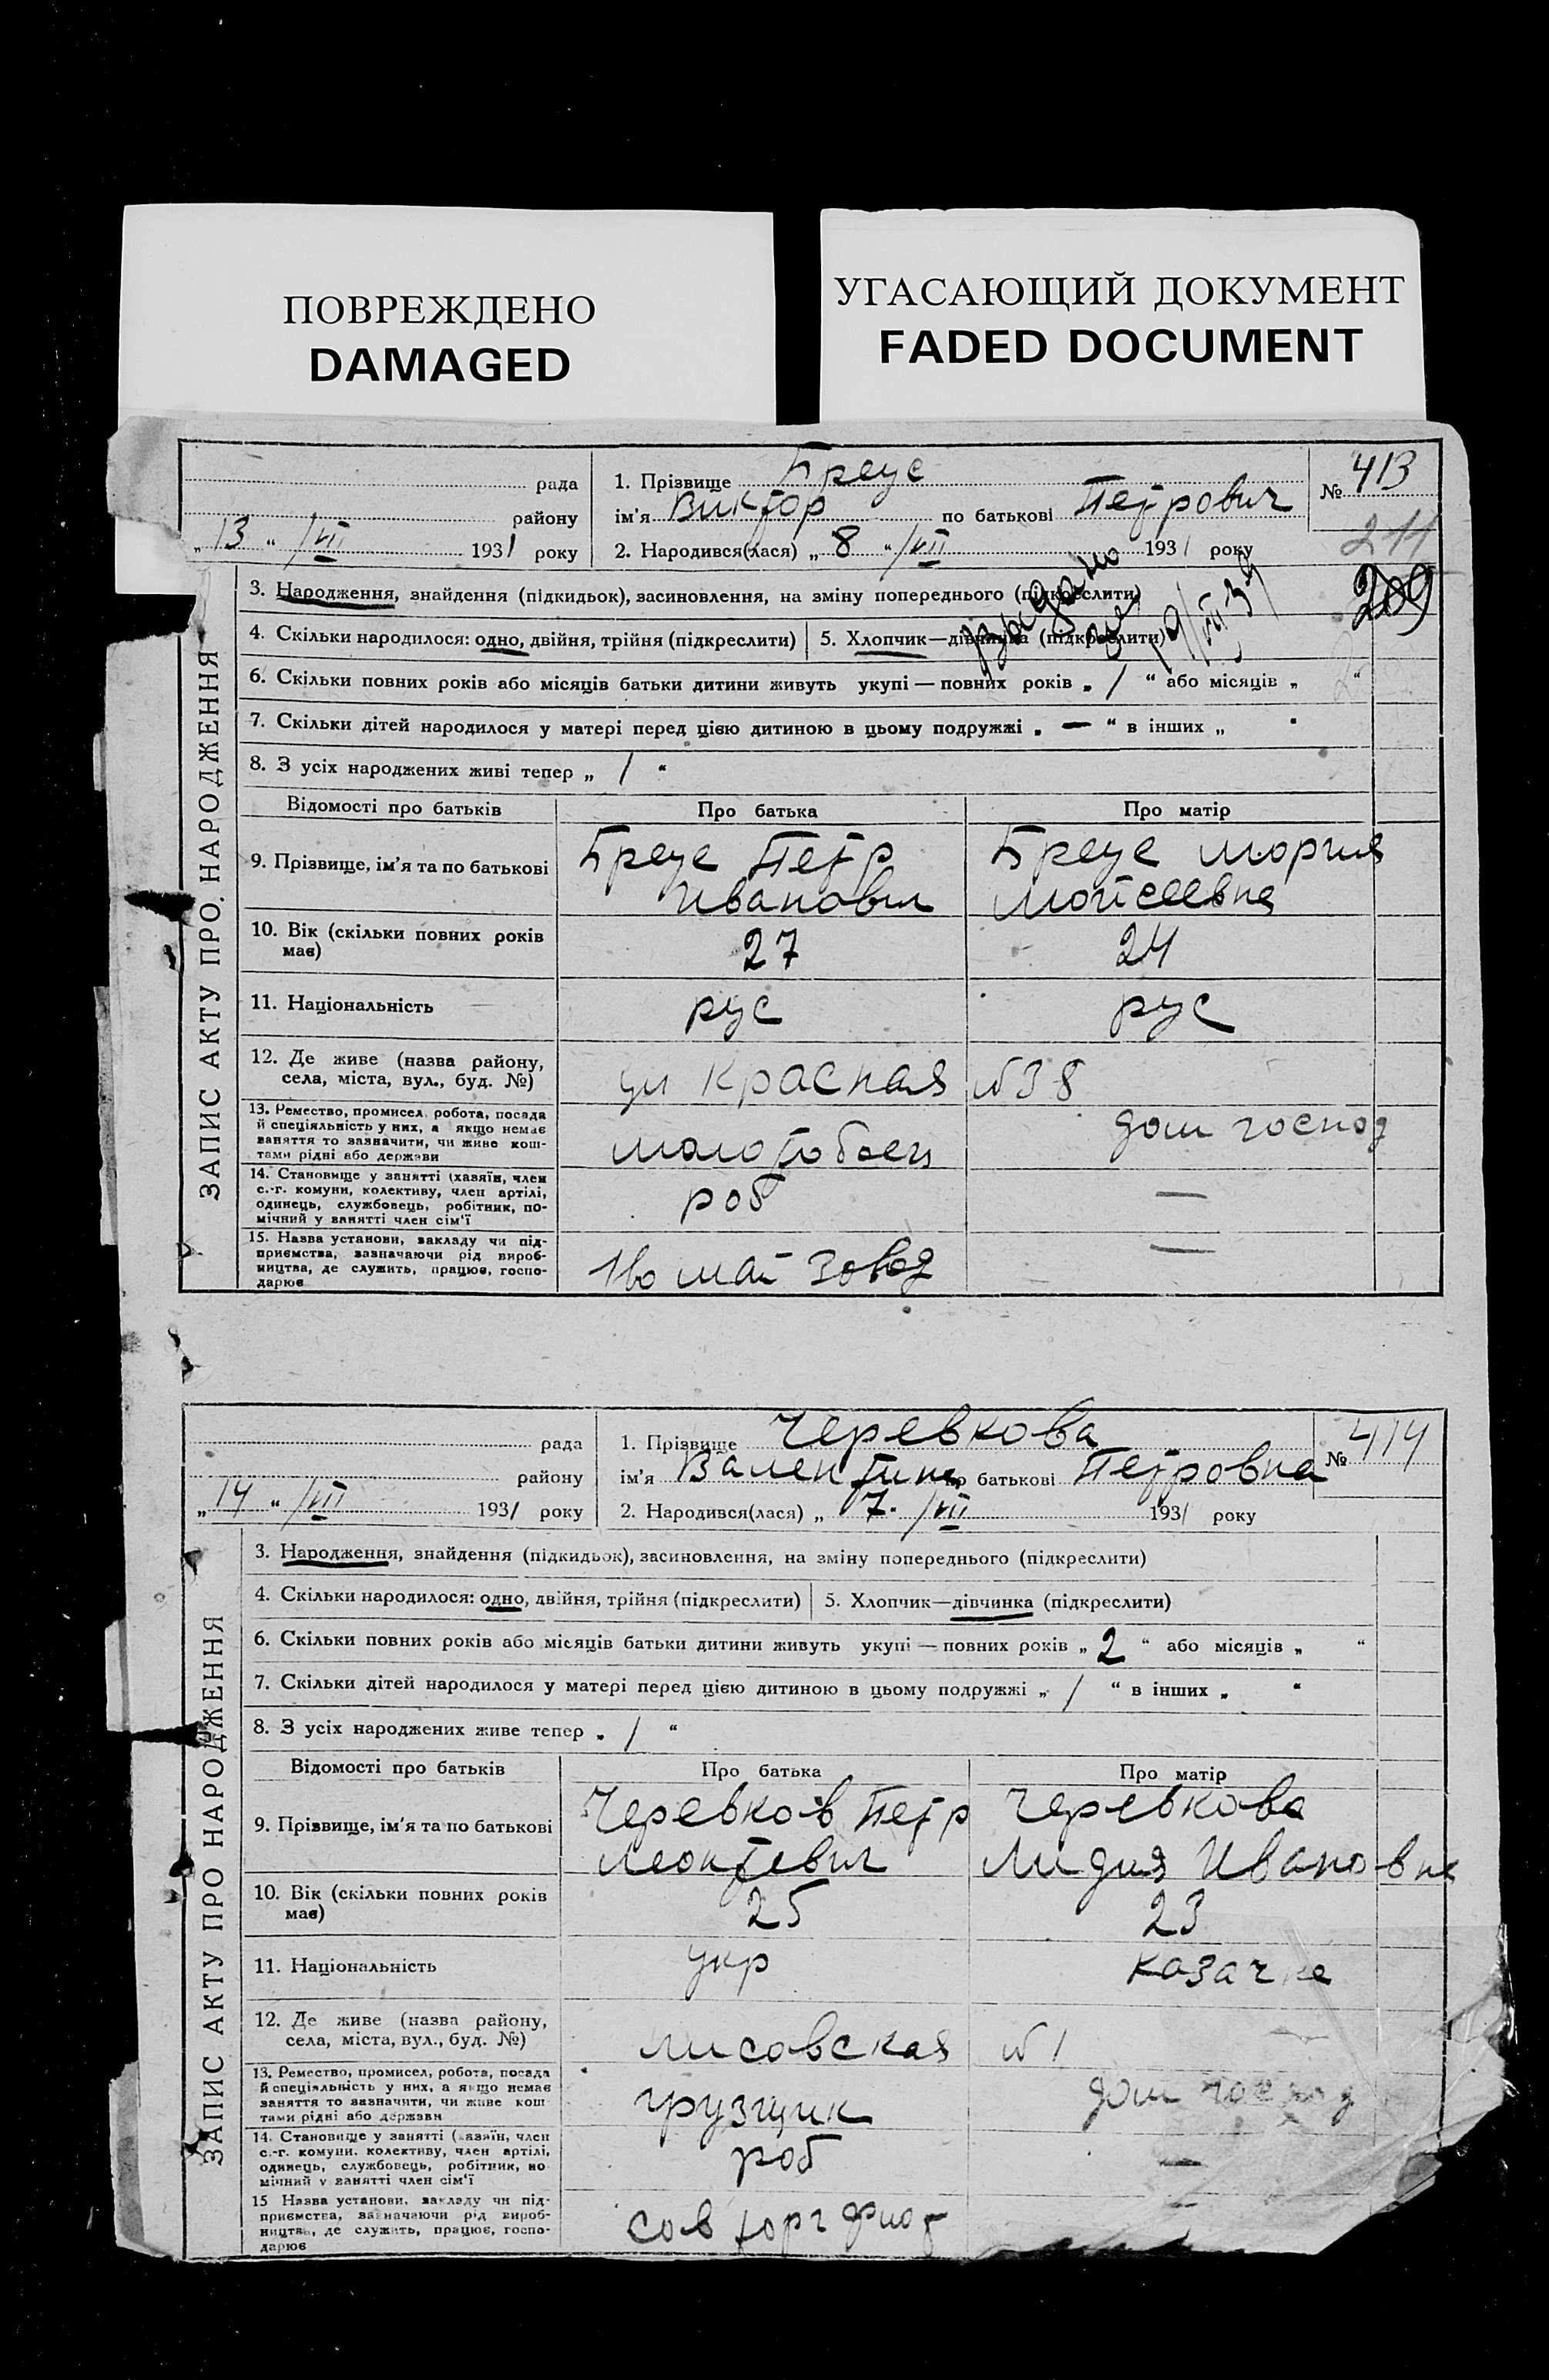 ПОВРЕЖДЕНО
DAMAGED
УГАСАЮЩИЙ ДОКУМЕНТ
FADED DOCUMENT
ЗАПИС АКТУ ПРО НАРОДЖЕННЯ
рада
району
„13“ /VII 1931 року
1. Прізвище Бреус
ім'я Виктор по батькові Петрович
2. Народився(лася) „8“ /VII 1931 року
№ 413
211
209
3. Народження, знайдення (підкидьок), засиновлення, на зміну попереднього (підкреслити)
4. Скільки народилося: одно, двійня, трійня (підкреслити) 5. Хлопчик—дівчинка (підкреслити)
6. Скільки повних років або місяців батьки дитини живуть укупі — повних років „ 1 “ або місяців „ “
7. Скільки дітей народилося у матері перед цією дитиною в цьому подружжі „ — “ в інших „ “
8. З усіх народжених живі тепер „ 1 “
Відомості про батьків Про батька Про матір
9. Прізвище, ім'я та по батькові
Бреус Петр
Иванович
Бреус Мория
Мойсеевна
10. Вік (скільки повних років
має)
27 24
11. Національність рус рус
12. Де живе (назва району,
села, міста, вул., буд. №)
ул Красная №38
13. Ремество, промисел, робота, посада
й спеціяльність у них, а якщо немає
заняття то зазначити, чи живе кош-
тами рідні або держави
молотобоец дом господ
14. Становище у занятті (хазяїн, член
с.-г. комуни, колективу, член артілі,
одинець, службовець, робітник, по-
мічний у занятті член сім'ї
роб —
15. Назва установи, закладу чи під-
приємства, зазначаючи рід вироб-
ництва, де служить, працює, госпо-
дарює
1го май завод —
ЗАПИС АКТУ ПРО НАРОДЖЕННЯ
рада
району
„14“ /VII 1931 року
1. Прізвище Черевкова
ім'я Валентина по батькові Петровна
2. Народився(лася) „ 7. /VII 1931 року
№ 414
3. Народження, знайдення (підкидьок), засиновлення, на зміну попереднього (підкреслити)
4. Скільки народилося: одно, двійня, трійня (підкреслити) 5. Хлопчик—дівчинка (підкреслити)
6. Скільки повних років або місяців батьки дитини живуть укупі — повних років „ 2 “ або місяців „ “
7. Скільки дітей народилося у матері перед цією дитиною в цьому подружжі „ 1 “ в інших „ “
8. З усіх народжених живе тепер „ 1 “
Відомості про батьків Про батька Про матір
9. Прізвище, ім'я та по батькові
Черевков Петр
Леонтевич
Черевкова
Лидия Ивановна
10. Вік (скільки повних років
має)
25 23
11. Національність укр козачка
12. Де живе (назва району,
села, міста, вул., буд. №)
Лисовская №1
13. Ремество, промисел, робота, посада
й спеціяльність у них, а якщо немає
заняття то зазначити, чи живе кош-
тами рідні або держави
грузщик дом господ
14. Становище у занятті (хазяїн, член
с.-г. комуни, колективу, член артілі,
одинець, службовець, робітник, по-
мічний у занятті член сім'ї
роб —
15 Назва установи, закладу чи під-
приємства, зазначаючи рід вироб-
ництва, де служить, працює, госпо-
дарює
Сов торг флот —